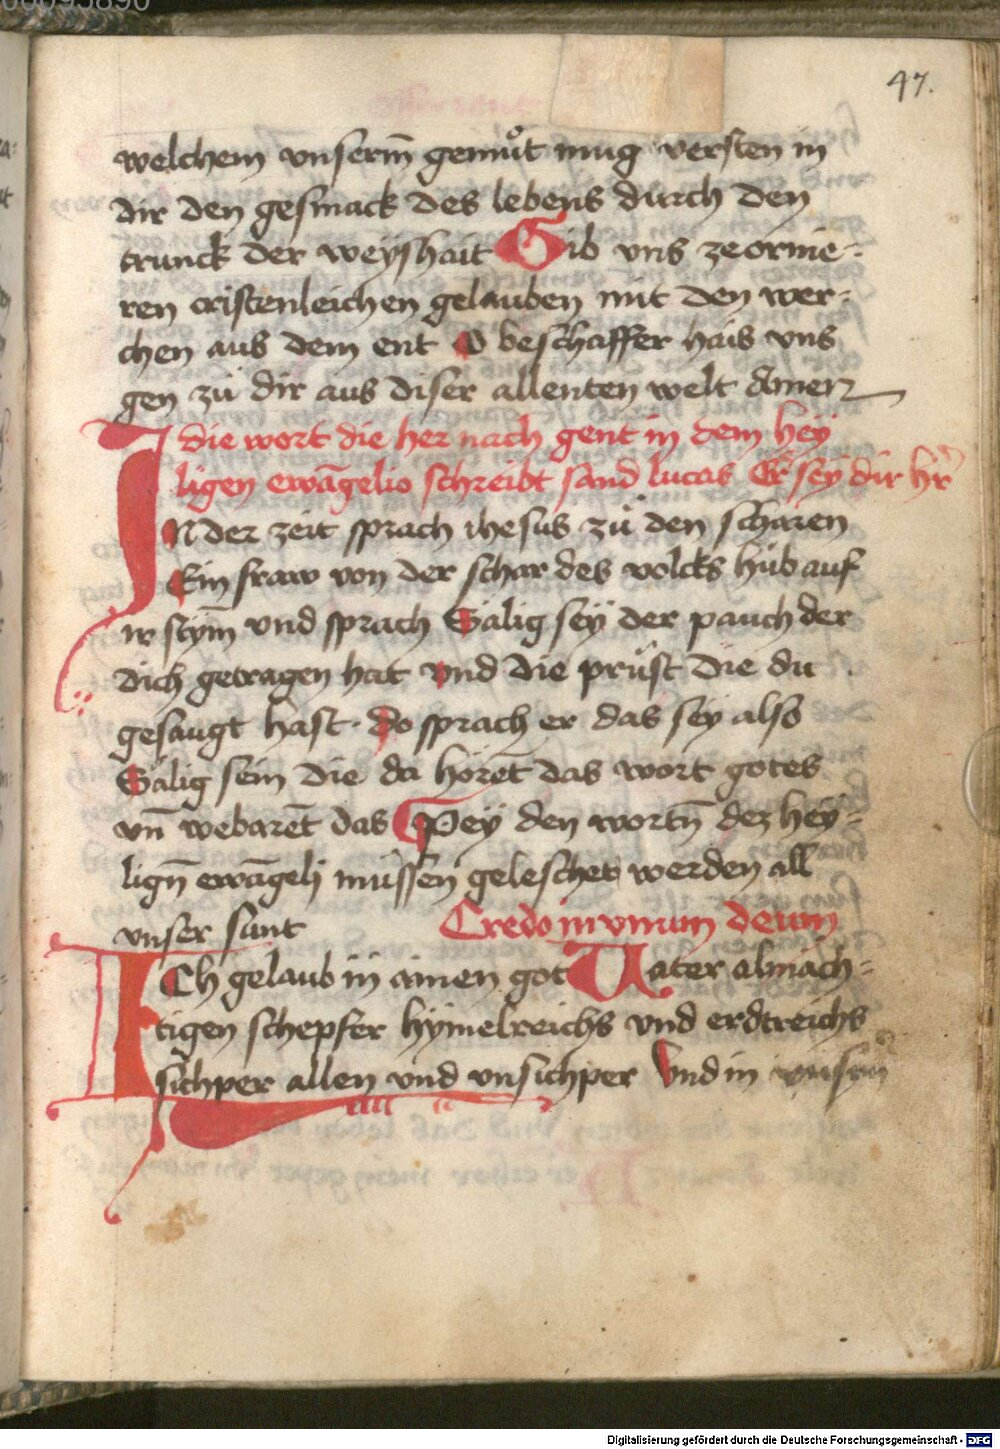 47.
welchem vnserm̄ gemuͦt mug versten in
dir den gesmack des lebens durch den
trunck der weyshait Gib vns zeornie-
ren cristenleichen gelauben mit den wer-
chen aus dem ent O beschaffer hais vns
gen zü dir aus diser allenten welt Amen
die wort die her nach gent in dem hey
ligen ewāgelio schreibt sand lucas Er sey dir hr̄
IN der zeit sprach ihesus zü den scharen
Ein fraw von der schar des volcks hüb auf
ir stym̄ vnd sprach Sälig sey der pauch der
dich getragen hat vnd die prüst die du
gesaugt hast · do sprach er das sey also
Sälig sein die da hörēt das wort gotes
vn̄ webarēt das Pey den wortn̄ dez hey-
lign̄ ewāgelj müssen geleschet werden all
vnser sünt Credo in vnum deum
ICh gelaub in ainen got Vater almäch-
tigen schepfer hymelreichs vnd erdtreichs
sichper allen vnd vnsichper Vnd in vnsern
Digitalisierung gefördert durch die Deutsche Forschungsgemeinschaft - DFG